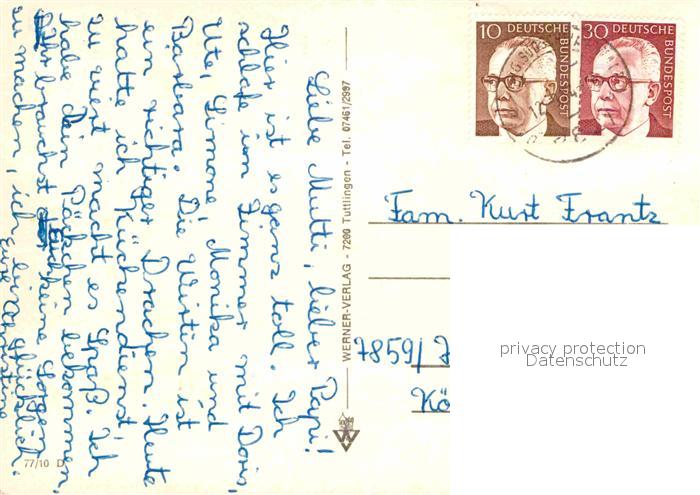 Liebe Mutti, lieber Papi!
Hier ist es ganz toll. Ich
schlafe im Zimmer mit Doris,
Ute, Simone, Monika und
Barbara. Die Wirtin ist
ein richtiger Drachen. Heute
hatte ich Küchendienst
zu viert macht es Spaß. Ich
habe Dein Päckchen bekommen.
Ihr braucht Euch keine Sorgen
zu machen, ich bin glücklich.
Eure Christine
77/10 D
WERNER-VERLAG - 7200 Tuttlingen - Tel. 07461/2997
10 DEUTSCHE BUNDESPOST
30 DEUTSCHE BUNDESPOST
Fam. Kurt Frantz
7859/
Kö
privacy protection
Datenschutz